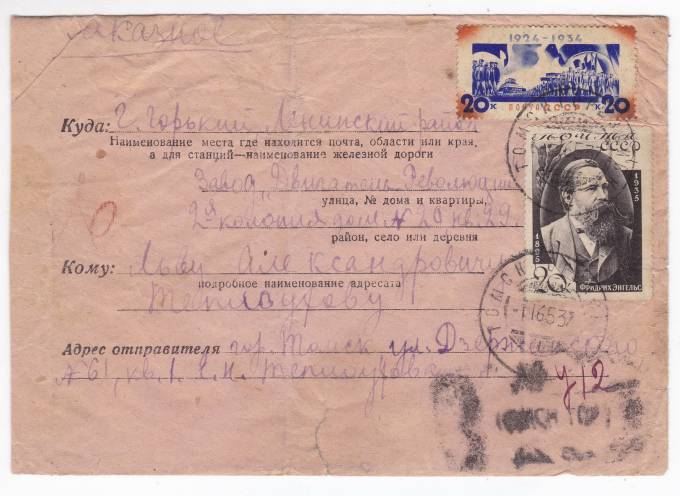 Заказное
1924-1934
20 к ПОЧТА СССР к 20
Куда: г. Горький Ленинский район
Наименование места где находится почта, области или края,
а для станций—наименование железной дороги
Завод „Двигатель Революции
улица, № дома и квартиры,
2я колония дом № 20 кв. 29.
район, село или деревня
Кому: Льву Александровичу
подробное наименование адресата
Теплоухову
Адрес отправителя гор. Томск ул. Дзержинского
№ 61, кв. 1. Теплоухова
ПОЧТА
СССР
1895
1935
ФРИДРИХ ЭНГЕЛЬС
ТОМСК
ТОМСК
16537